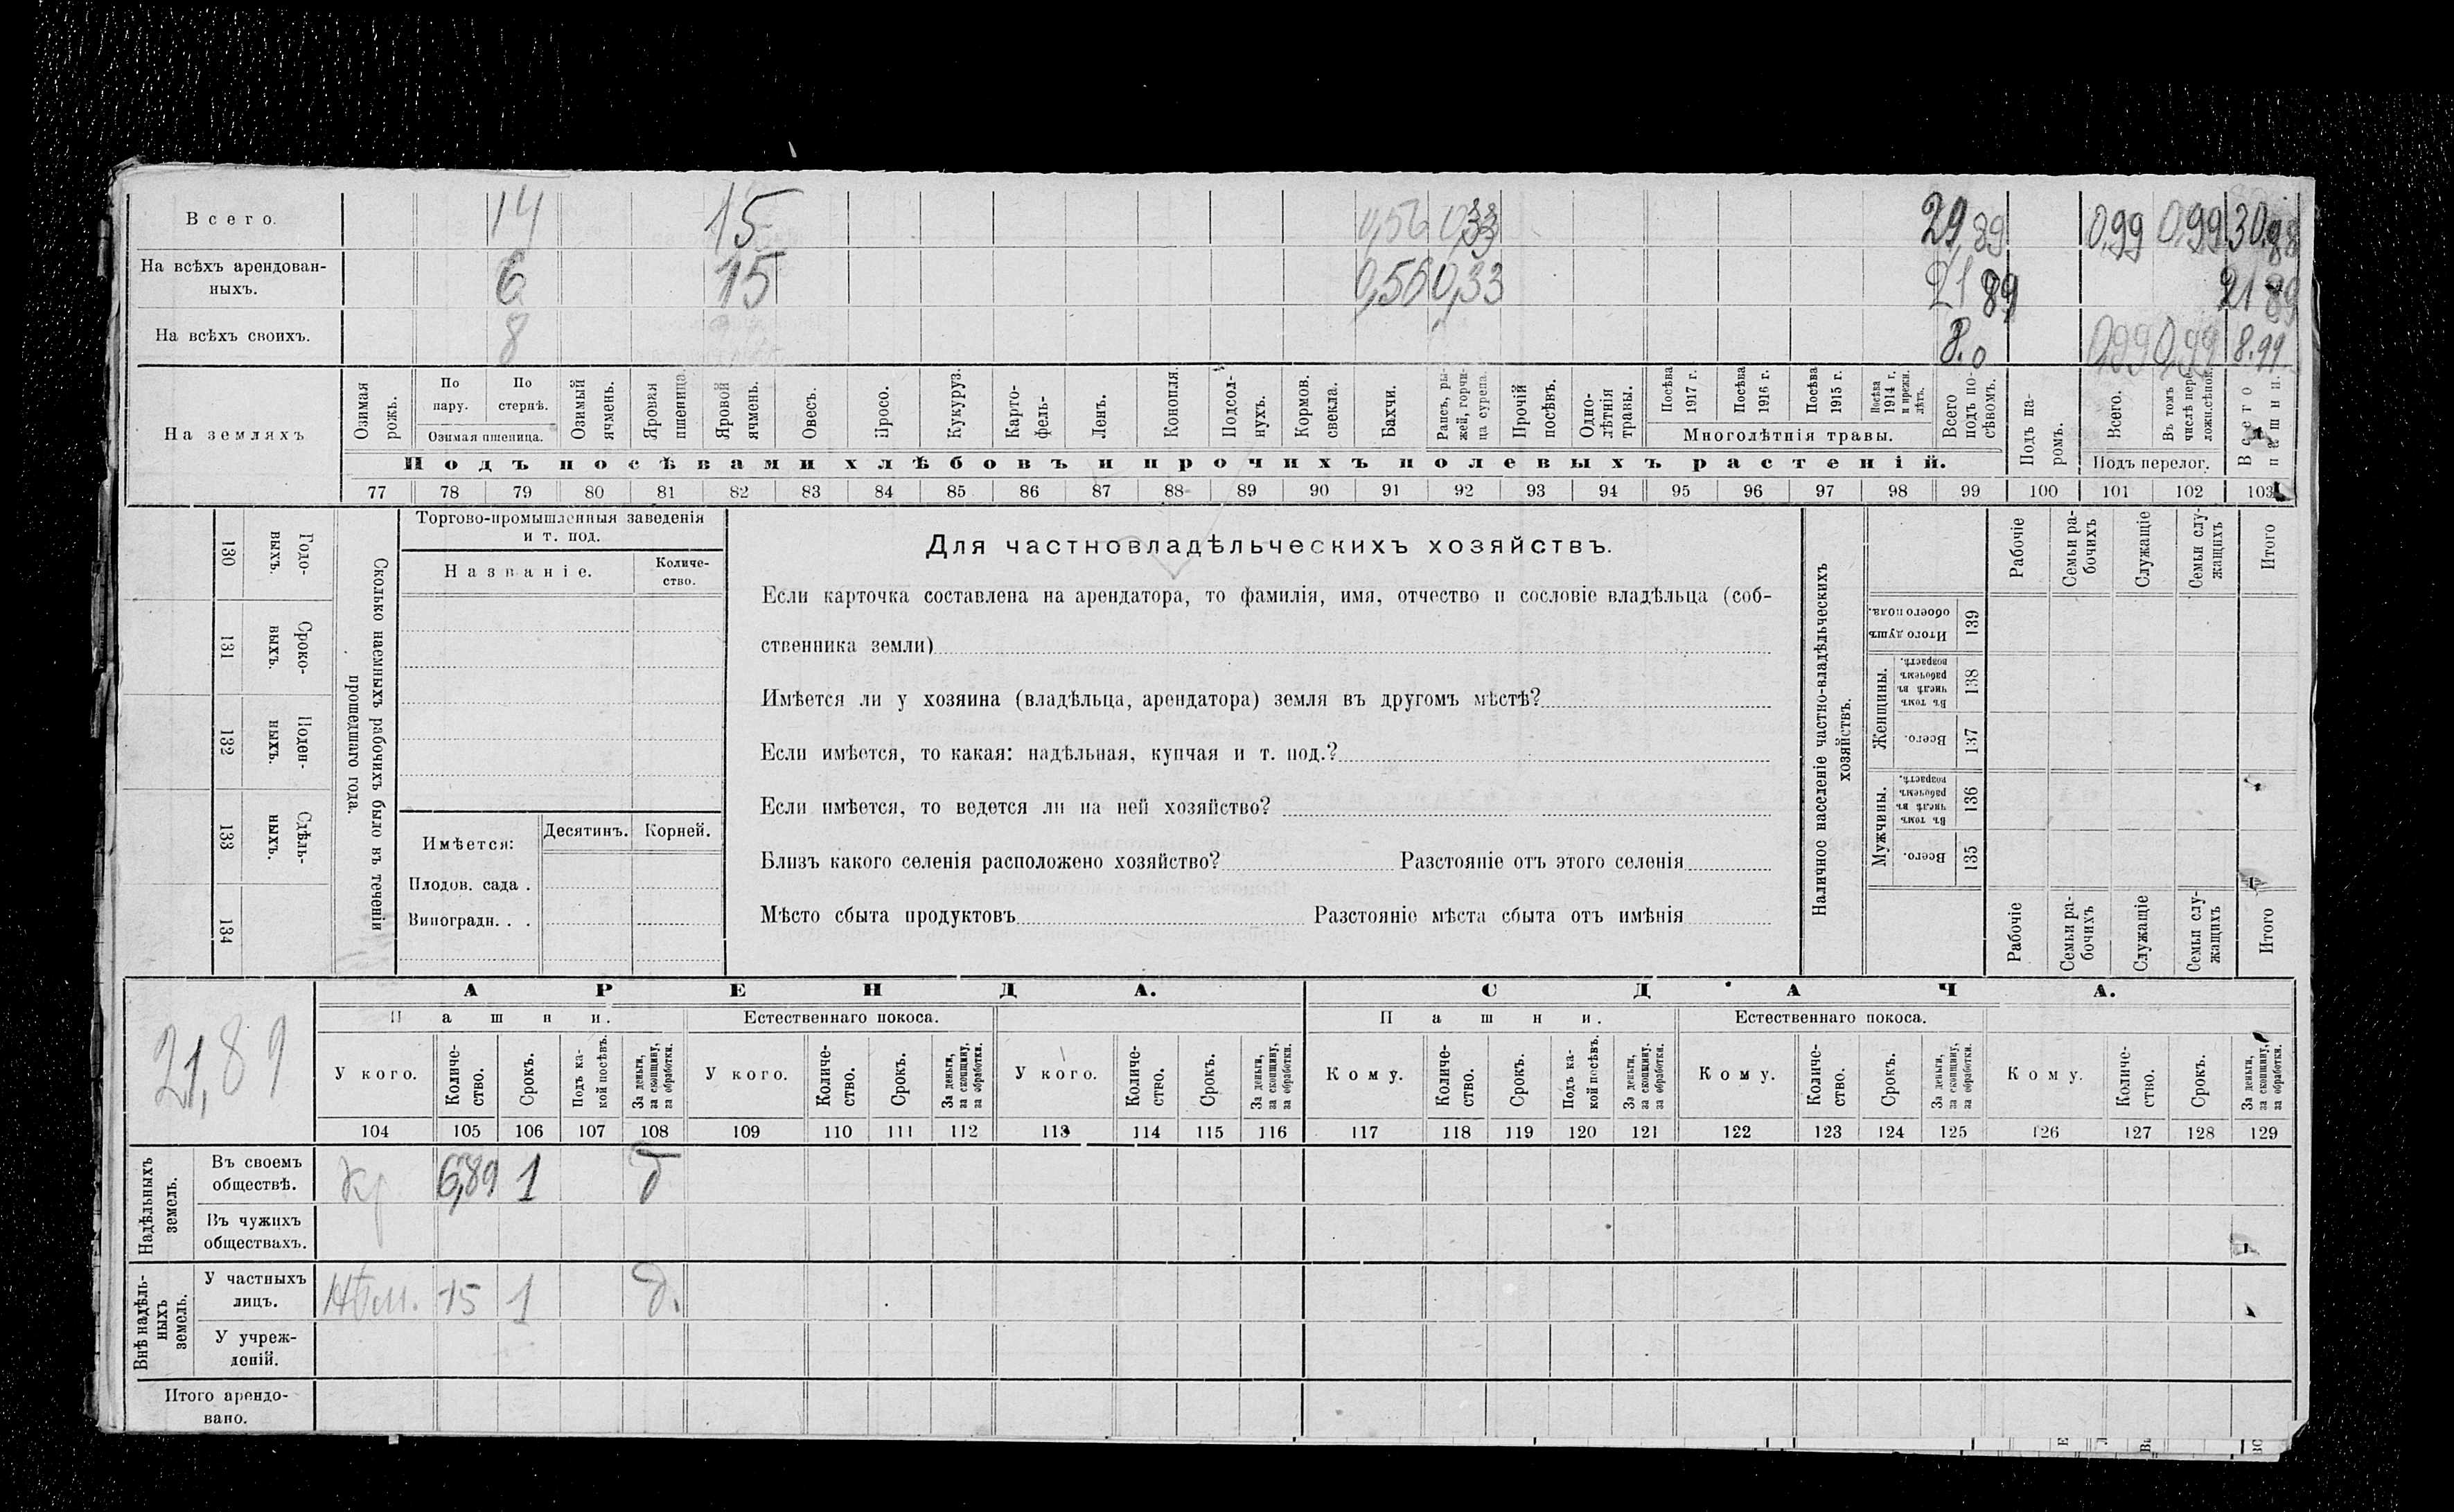 Всего. 14 15 0,56 0,33 29,89 0,99 0,99 30,88
На всѣхъ арендован-
ныхъ. 6 15 0,56 0,33 21 89 21 89
На всѣхъ своихъ. 8 8.0 0,99 0,99 8.99
На земляхъ
Озимая рожь.
По пару.
По стернѣ.
Озимая пшеница.
Озимый ячмень.
Яровая пшеница.
Яровой ячмень.
Овесъ.
Просо.
Кукуруз.
Карто-
фель-
Ленъ.
Конопля.
Подсол-
нухъ.
Кормов. свекла.
Бахчи.
Рапсъ, ры-
жей, горчи-
ца сурепа.
Прочій посѣвъ.
Одно-
лѣтнія травы.
Посѣва 1917 г.
Посѣва 1916 г.
Посѣва 1915 г.
Посѣва 1914 г. и прежн. лѣтъ.
Многолѣтнія травы.
Всего подъ по-
сѣвомъ.
Подъ па-
ромъ.
Всего.
Въ томъ числѣ пере-
ложн.сѣнок.
Подъ перелог.
Всего пашни.
Подъ посѣвами хлѣбовъ и прочихъ полевыхъ растеній.
77 78 79 80 81 82 83 84 85 86 87 88 89 90 91 92 93 94 95 96 97 98 99 100 101 102 103
130 Годо-
выхъ.
131 Сроко-
выхъ.
132 Поден-
ныхъ.
133 Сдѣль-
ныхъ.
134
Сколько наемныхъ рабочихъ было въ теченіи
прошедшаго года.
Торгово-промышленныя заведенія
и т. под.
Названіе.
Количе-
ство.
Имѣется:
Десятинъ. Корней.
Плодов. сада .
Виноградн. . .
Для частновладѣльческихъ хозяйствъ.
Если карточка составлена на арендатора, то фамилія, имя, отчество и сословіе владѣльца (соб-
ственника земли)
Имѣется ли у хозяина (владѣльца, арендатора) земля въ другомъ мѣстѣ?
Если имѣется, то какая: надѣльная, купчая и т. под.?
Если имѣется, то ведется ли на ней хозяйство?
Близъ какого селенія расположено хозяйство? Разстояніе отъ этого селенія
Мѣсто сбыта продуктовъ Разстояніе мѣста сбыта отъ имѣнія
Наличное населеніе частно-владѣльческихъ
хозяйствъ.
Рабочіе
Семьи ра-
бочихъ
Служащіе
Семьи слу-
жащихъ
Итого
Итого душъ обоего пола. 139
Женщины.
Въ томъ числѣ въ рабочемъ возрастѣ. 138
Всего. 137
Мужчины.
Въ томъ числѣ въ рабочемъ возрастѣ. 136
Всего. 135
Рабочіе
Семьи ра-
бочихъ
Служащіе
Семьи слу-
жащихъ
Итого
21,89
АРЕНДА. СДАЧА.
Пашни. Естественнаго покоса. Пашни. Естественнаго покоса.
У кого.
Количе-
ство.
Срокъ.
Подъ ка-
кой посѣвъ.
За деньги, за скопщину, за обработки.
У кого.
Количе-
ство.
Срокъ.
За деньги, за скопщину, за обработки.
У кого.
Количе-
ство.
Срокъ.
За деньги, за скопщину, за обработки.
Кому.
Количе-
ство.
Срокъ.
Подъ ка-
кой посѣвъ.
За деньги, за скопщину, за обработки.
Кому.
Количе-
ство.
Срокъ.
За деньги, за скопщину, за обработки.
Кому.
Количе-
ство.
Срокъ.
За деньги, за скопщину, за обработки.
104 105 106 107 108 109 110 111 112 113 114 115 116 117 118 119 120 121 122 123 124 125 126 127 128 129
Надѣльныхъ земель.
Въ своемъ
обществѣ. Кр 6,89 1 д
Въ чужихъ
обществахъ.
Внѣ надѣль-
ныхъ земель.
У частныхъ
лицъ. 15 1 д.
У учреж-
деній.
Итого арендо-
вано.